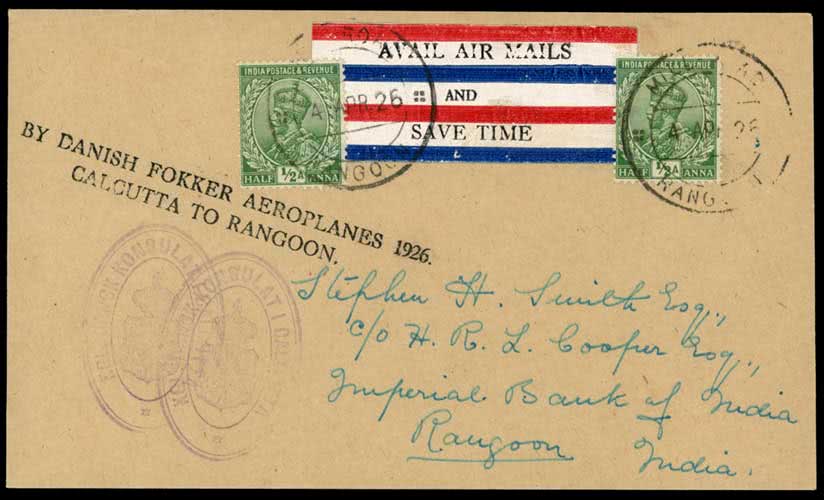 AVAIL AIR MAILS
AND
SAVE TIME
INDIA POSTAGE & REVENUE
HALF ½A ANNA
4 APR 26
INDIA POSTAGE & REVENUE
HALF ½A ANNA
4 APR 26
RANG
BY DANISH FOKKER AEROPLANES 1926.
CALCUTTA TO RANGOON.
KONSULAT I
Stephen H. Smith Esq.,
c/o H. R. L. Cooper Esq.,
Imperial Bank of India
Rangoon
India.